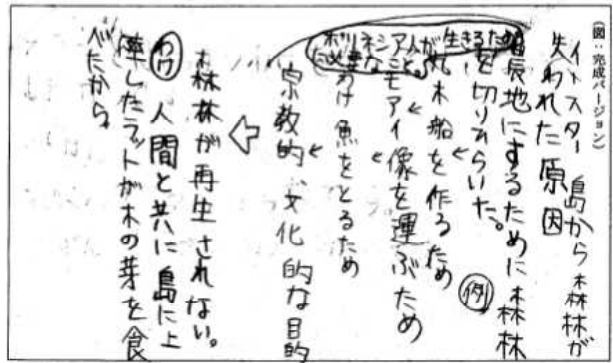 (図:完成バージョン)
イースター島から森林が
失われた原因
農地にするために森林
を切りひらいた。
例
丸木船を作るため
モアイ像を運ぶため
魚をとるため
宗教的、文化的な目的
森林が再生されない。
わけ 人間と共に島に上
陸したラットが木の芽を食
べたから。